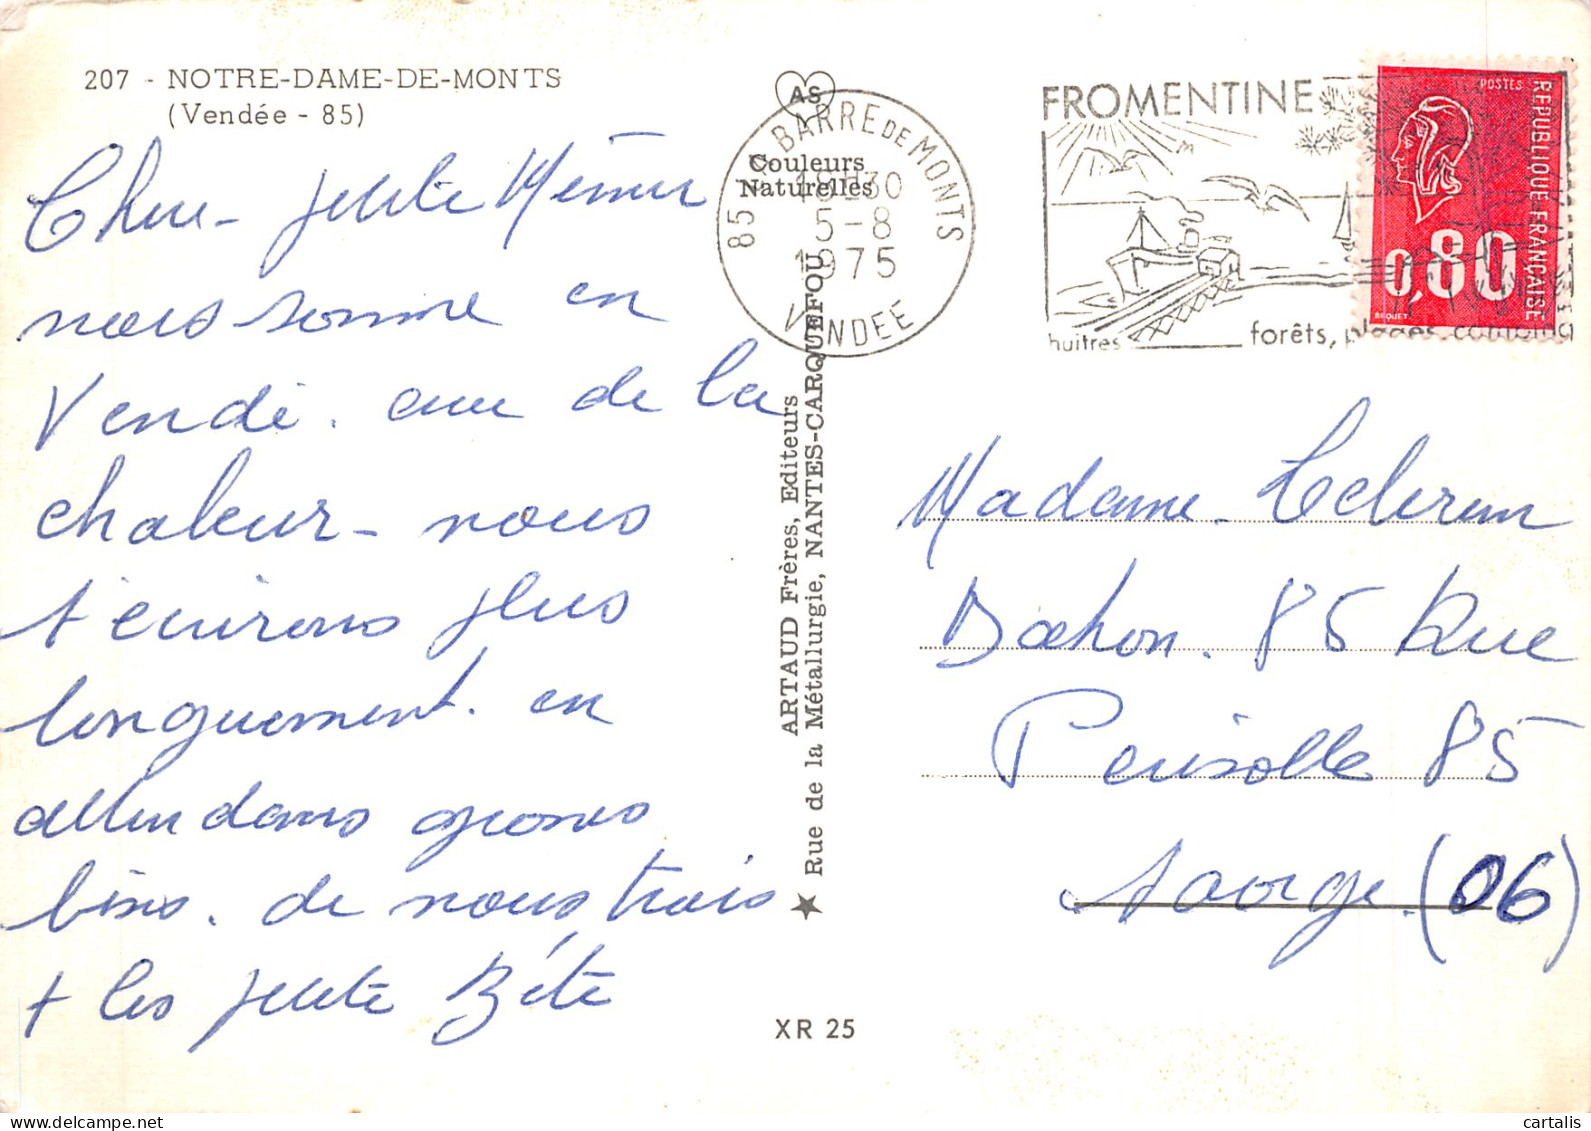 207 - NOTRE-DAME-DE-MONTS
(Vendée - 85)
Chere petite Mémer
nous somme en
Vendé. avec de la
chaleur - nous
t'écrirons plus
longuement. en
attendans grosses
bises. de nous trois
+ les petite Bète
AS
Couleurs
Naturelles
85 LA BARRE DE MONTS
18H30
5-8
1975
VENDEE
ARTAUD Frères, Editeurs
Rue de la Métallurgie, NANTES-CARQUEFOU
XR 25
FROMENTINE
huitres forêts, plages, camping
POSTES
REPUBLIQUE FRANÇAISE
0,80
BEQUET
Madame
85 Rue
Périsolle 85
Saorge. (06)
cartalis